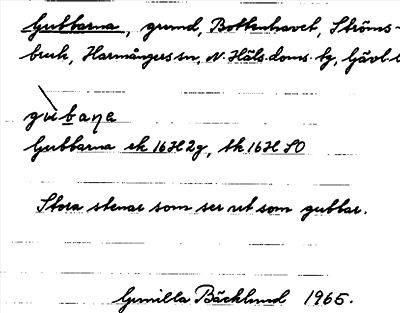 Gubbarna, grund, Bottenhavet, Ströms-
bruk, Harmångers sn, N. Häls. doms. tg, Gävl. l
gùbaɳa
Gubbarna ek 16H2g, tk 16H SO
Stora stenar som ser ut som gubbar.
Gunilla Bäcklund 1965.